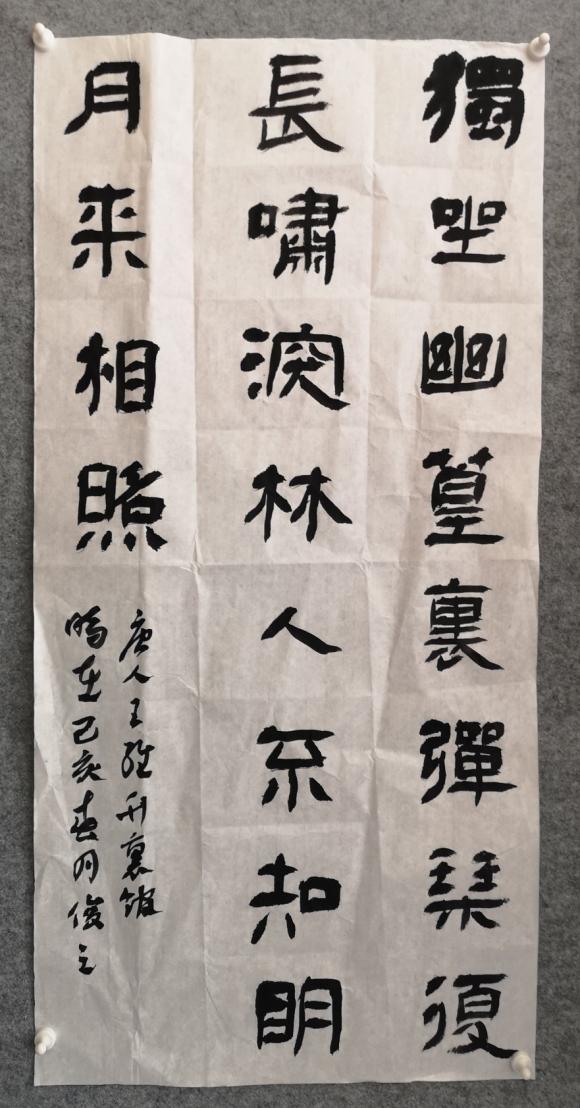 獨坐幽篁裏彈琹復
長嘯深林人不知明
月来相照
唐人王維竹裏館
時在己亥春月俊之